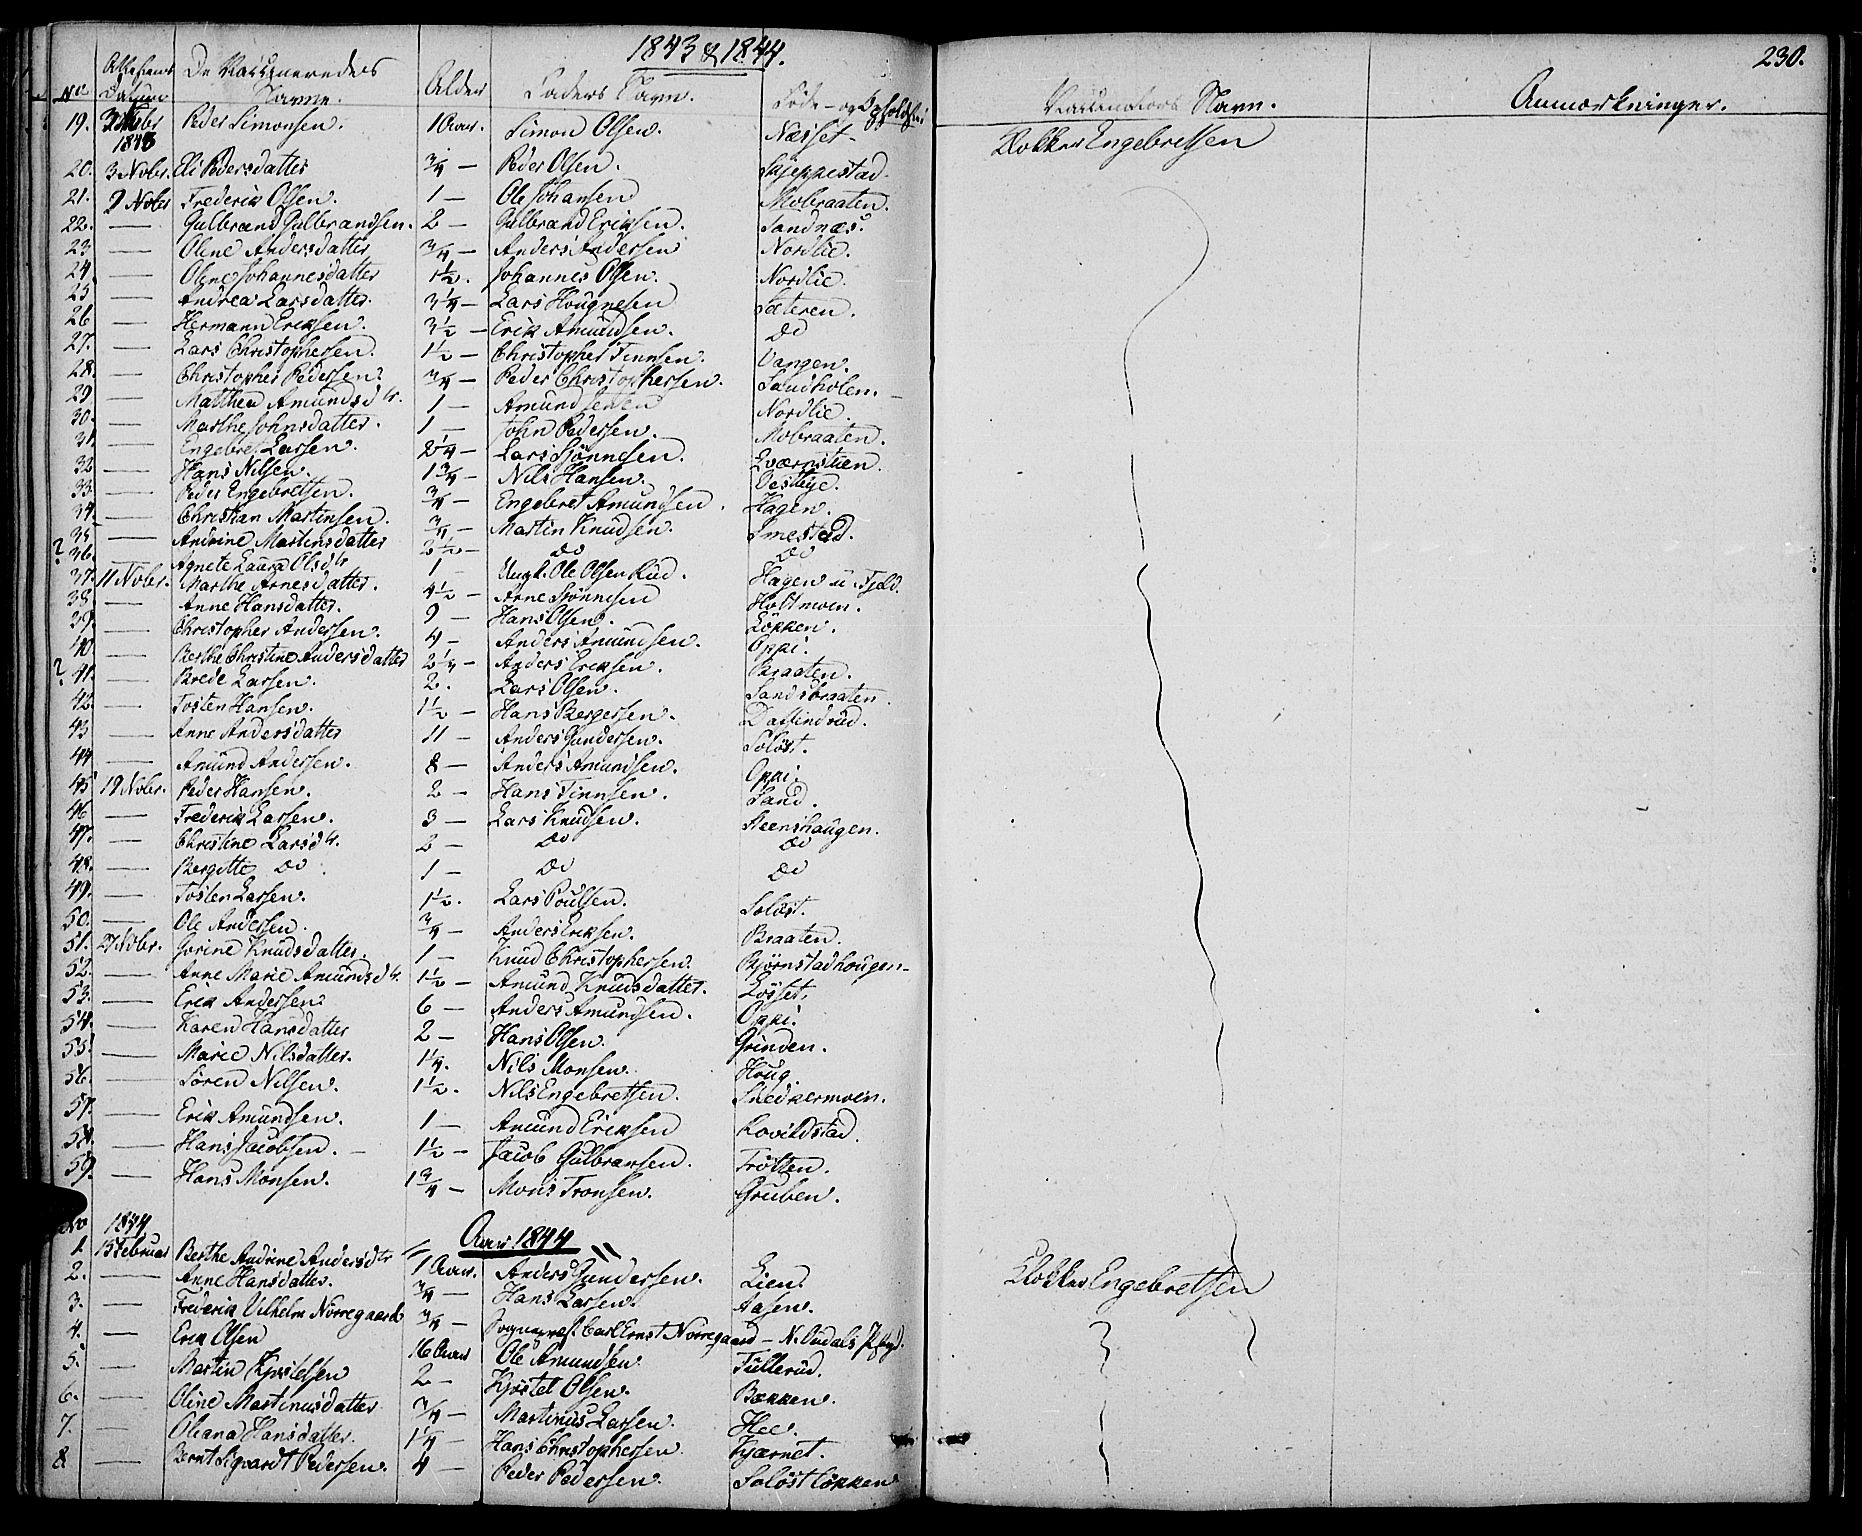 1843 & 1844.
230.
No Attestens Datum De Vaccineredes Navne. Alder Faders Navn. Føde- og Opholdsted Vaccinators Navn. Anmærkninger.
19. 3 Nobr 1843 Peder Simonsen. 1 Aar. Simon Olsen. Næsset Klokker Engebretsen
20. 3 Nobr. Eli Pedersdatter 3/4 — Peder Olsen. Skjeppestad.
21. 9 Nobr Frederik Olsen. 1 — Ole Johansen Mobraaten.
22. — Gulbrand Gulbrandsen. 2 — Gulbrand Eriksen. Sandnæs.
23. — Oline Andersdatter 3/4 — Anders Andersen Nordlie.
24 — Oline Johannesdatter 1 1/2. Johannes Olsen. Nordlie.
25 — Andrea Larsdatter. 3 1/4 — Lars Hougnesen Sæteren.
26 — Hermann Eriksen. 3 1/2 — Erik Amundsen. do
27. — Lars Christophersen. 1 1/2 — Christopher Finnsen. Vangen.
28. — Christopher Pedersen. 3/4 — Peder Christophersen. Sandholen.
29 — Matthea Amundsdtr. 1 — Amund Nordlie.
30. — Marthe Johnsdatter. 1 — John Pedersen. Mobraaten.
31. — Engebret Larsen. 2 1/4 — Lars Sjønnesen. Qværnstuen.
32 — Hans Nilsen. 1 3/4 — Nils Hansen. Vestbye.
33. — Peder Engebretsen. 3/4 — Engebret Amundsen. Hagen.
34. — Christian Martinsen. 3/4 — Martin Knudsen. Smestad.
35 — Andrine Martinsdatter 2 1/2 — do do
? 36. Agnete Laura Olsdtr 1 — Ungk. Ole Olsen Rud. Hagen u. Fjeld.
37. 11 Nobr. Marthe Arnesdatter. 4 1/2 — Arne Sjønnesen Holtmoen.
38. — Anne Hansdatter. 9 — Hans Olsen. Løkken.
39. — Christopher Andersen. 4 — Anders Amundsen. Oppi.
40. — Berthe Christine Andersdatter 2 1/4 — Anders Eriksen. Braaten.
? 41. — Brede Larsen. 2. Lars Olsen. Sandsbraaten
42. — Tosten Hansen. 1 1/2 — Hans Bergersen. Daslindrud.
43 — Anne Andersdatter 11 — Anders Gundersen. Soløst.
44 — Amund Andersen. 8 — Anders Amundsen. Oppi.
45 19 Nobr. Peder Hansen. 2 — Hans Finnsen. Sand.
46 — Frederik Larsen. 3 — Lars Knudsen. Steenshaugen.
47. — Christine Larsdtr. 2 — do do
48. — Bergitte do 1 — do do
49. — Tosten Larsen. 1 1/2. Lars Poulsen. Soløst.
50. — Ole Andersen. 3/4 — Anders Eriksen. Braaten.
51. 27 Nobr. Gorine Knudsdatter. 1 — Knud Christophersen. Bjørnstadhougen
52. — Anne Marie Amundsdtr. 1 1/2 — Amund Knudsdatter. Løsset,
53. — Erik Andersen. 6 — Anders Amundsen. Oppi.
54. — Karen Hansdatter 2 — Hans Olsen. Grinden.
55. — Marie Nilsdatter. 1 1/4. Nils Monsen. Houg.
56. — Søren Nilsen. 1 1/2. Nils Engebretsen. Snedkermoen.
57. — Erik Amundsen. 1 — Amund Eriksen Rovildstad.
58. — Hans Jacobsen. 1 1/2 — Jacob Gulbransen. Frøtten.
59. — Hans Monsen. 1 3/4 — Mons Tronsen. Gruben.
No 1844 Aar 1844
1. 15 Februar Berthe Andrine Andersdtr 1 Aar. Anders Gundersen. Lien. Klokker Engebretsen
2. — Anne Hansdatter. 3/4 — Hans Larsen. Aasen.
3. — Frederik Vilhelm Nørregaard 3/4 — Sognepræst Carl Ernst Nørregaard — N. Oudals Pgrd.
4. — Erik Olsen 16 Aar Ole Amundsen. Tullerud.
5. — Martin Kjøstelsen 2 — Kjøstel Olsen. Bækken.
6. — Oline Martinusdatter 3/4 — Martinus Larsen. Hee.
7. — Oleana Hansdatter. 1 1/4 — Hans Christophersen Kjærnet.
8 — Bernt Sigvardt Pedersen. 4 — Peder Pedersen. Soløstløkken